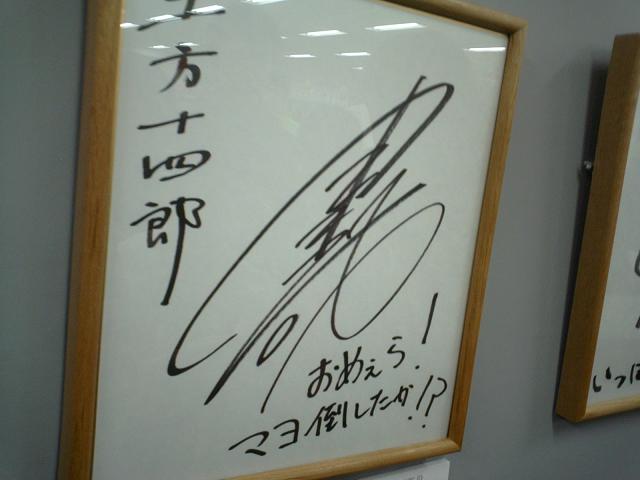 土方十四郎
おめぇら!
マヨ倒したか!?
いっぱ